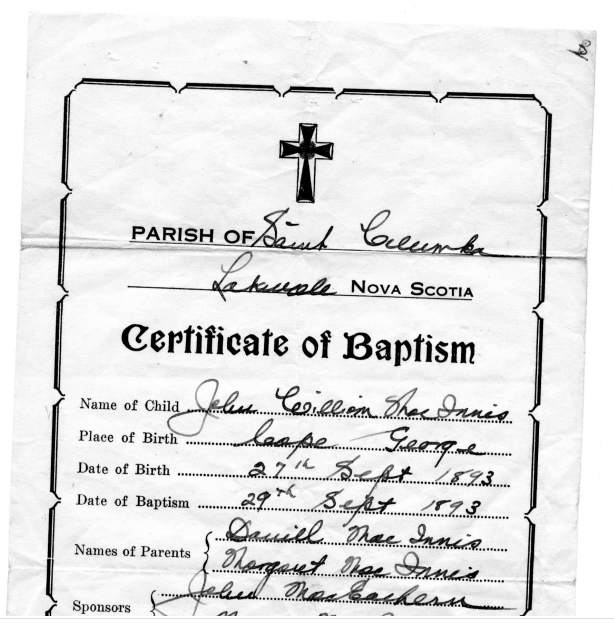 PARISH OF Saint Columba
Lakevale NOVA SCOTIA
Certificate of Baptism
Name of Child John William Mac Innis
Place of Birth Cape George
Date of Birth 27th Sept 1893
Date of Baptism 29th Sept 1893
Names of Parents
Daniell Mac Innis
Margaret Mac Innis
Sponsors John MacEachern